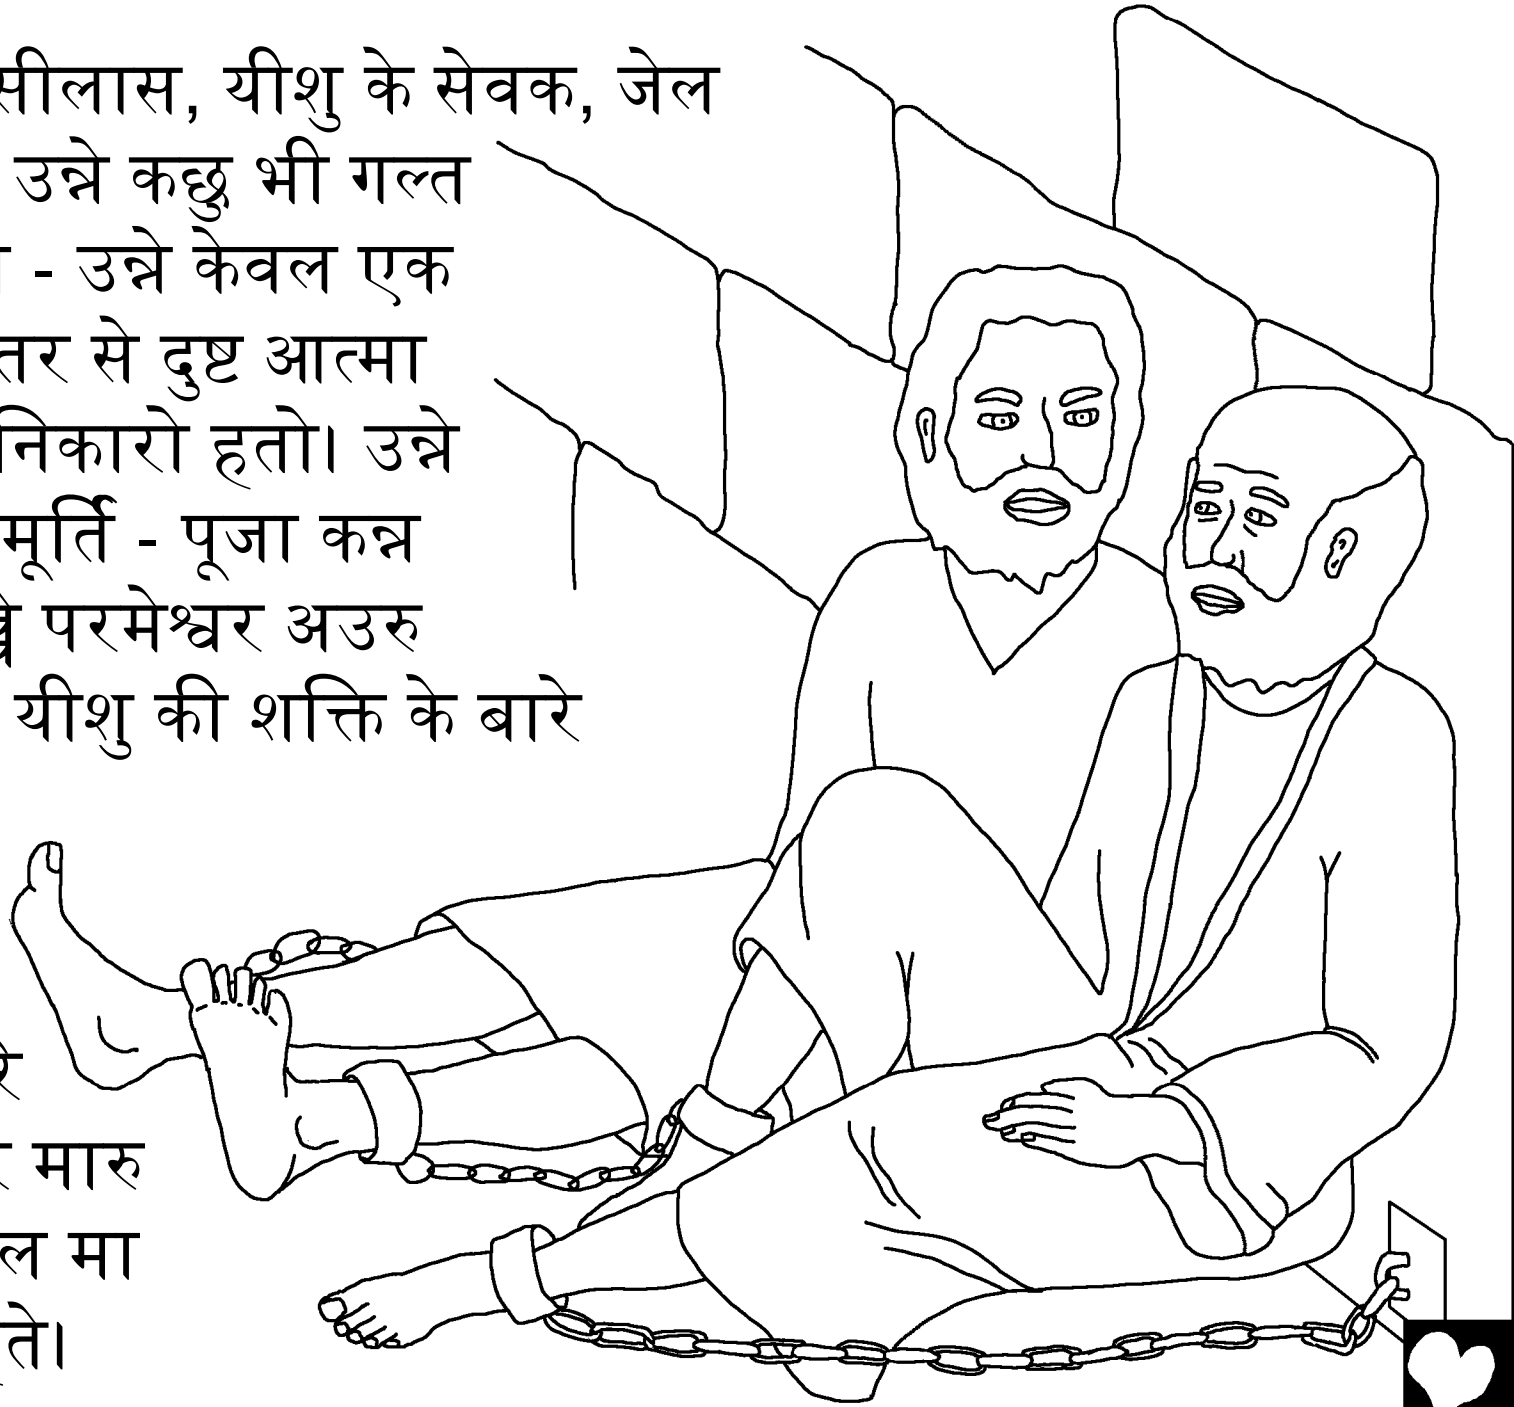 सीलास, यीशु के सेवक, जेल
उन्ने कछु भी गल्त
- उन्ने केवल एक
से दुष्ट आत्मा
निकारो हतो। उन्ने
मूर्ति - पूजा कन्न
परमेश्वर अउरु
यीशु की शक्ति के बारे
मारु
मा